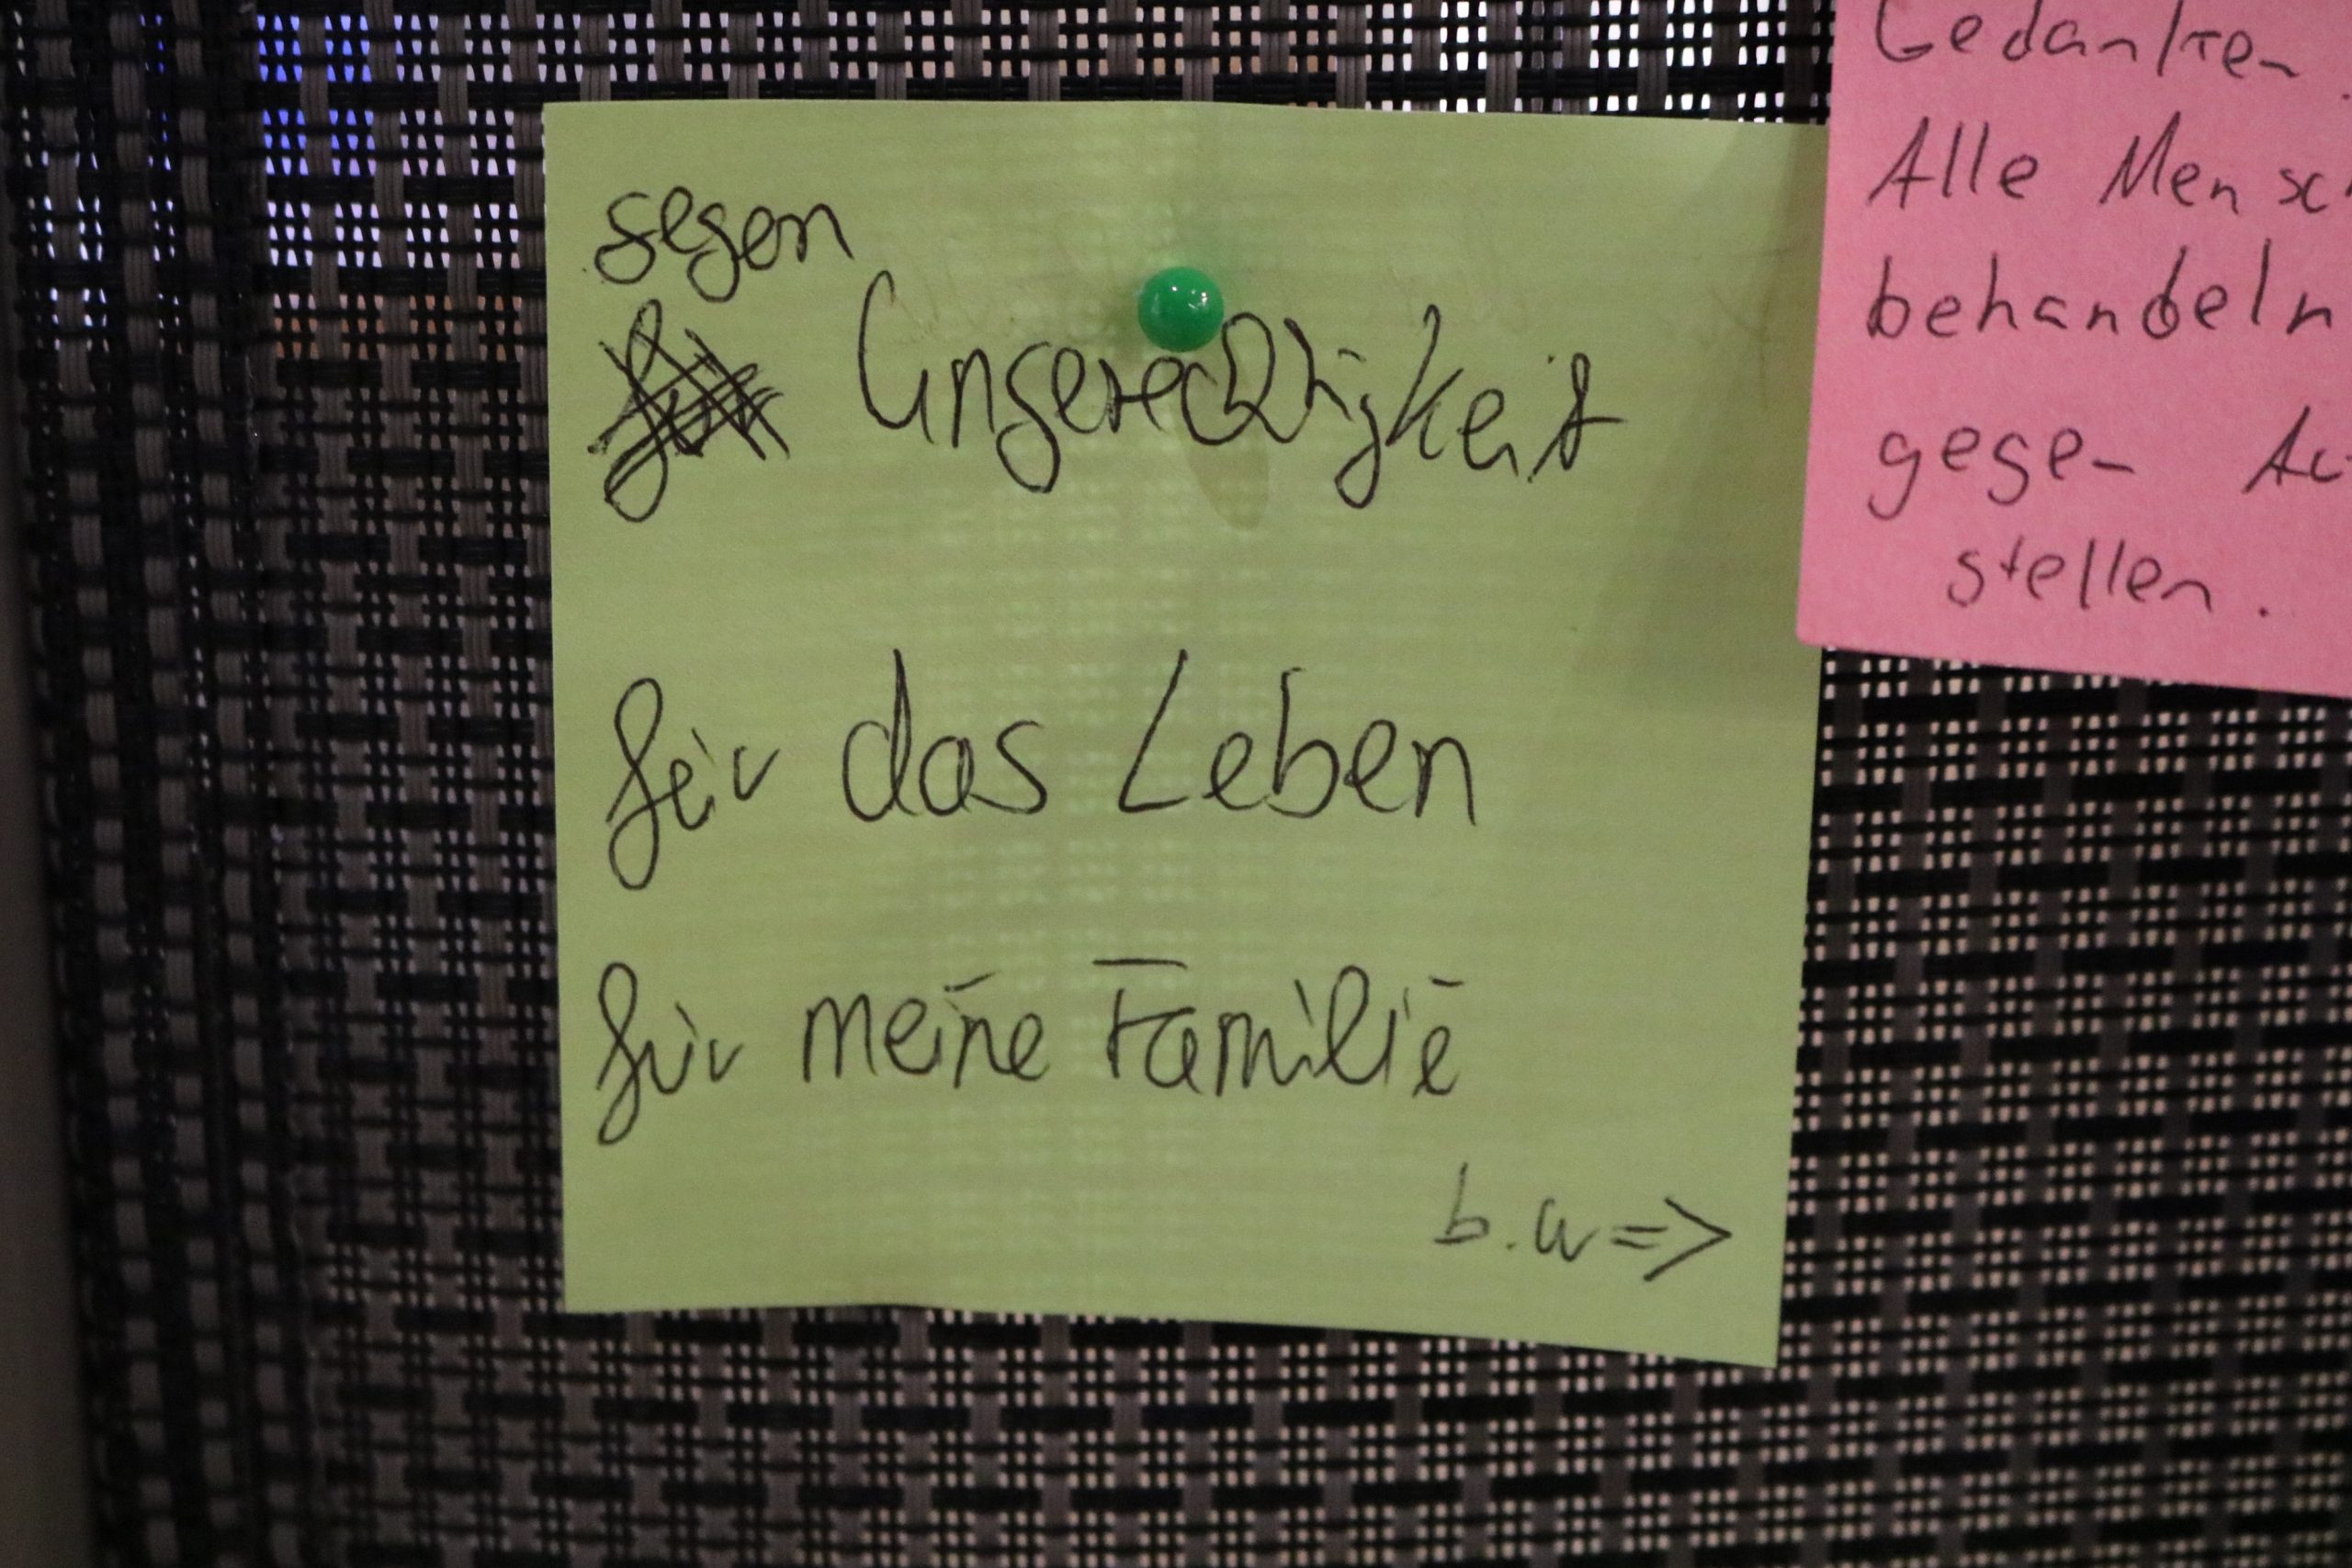 gegen
Ungerechtigkeit
für das Leben
für meine Familie
b.w =>
Gedanken.
Alle Mensc
behandeln
gegen
stellen.